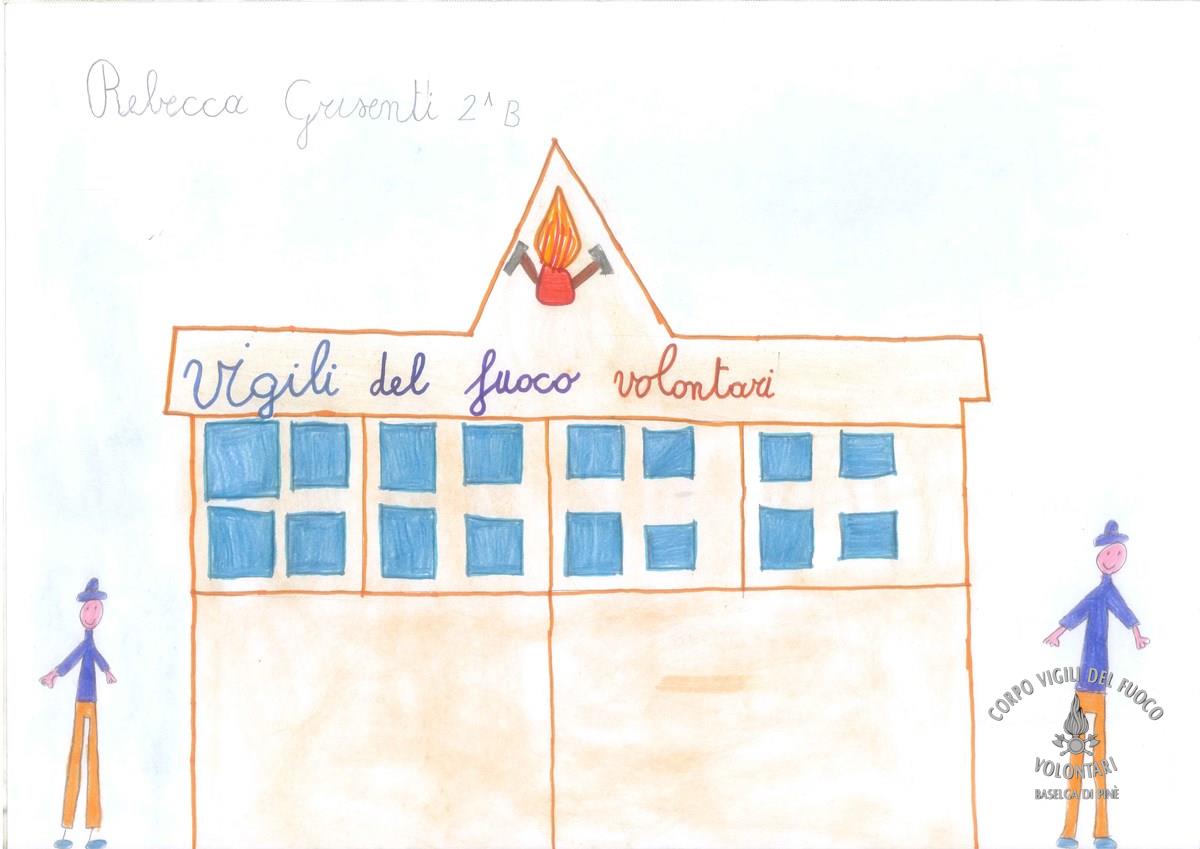 Rebecca Grisenti 2^B
Vigili del fuoco volontari
CORPO VIGILI DEL FUOCO
VOLONTARI
BASELGA DI PINÈ